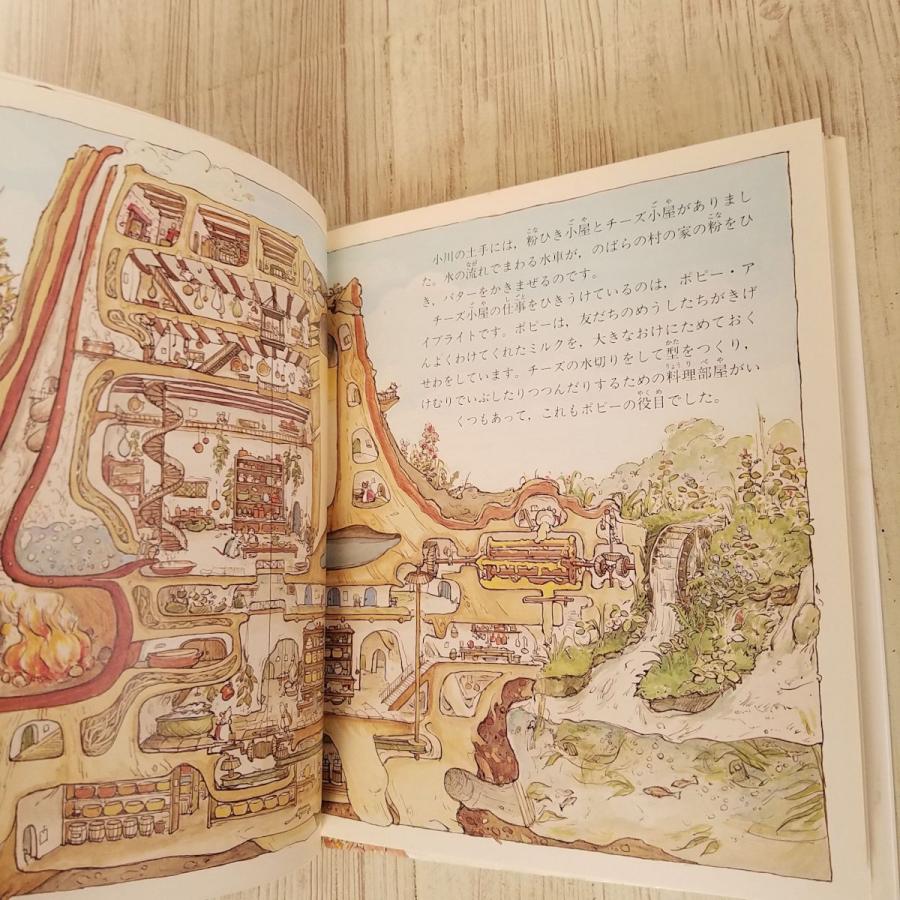 小川の土手には，粉ひき小屋とチーズ小屋がありまし
た。水の流れでまわる水車が，のばらの村の家の粉をひ
き，バターをかきまぜるのです。
チーズ小屋の仕事をひきうけているのは，ポピー・ア
イブライトです。ポピーは，友だちのめうしたちがきげ
んよくわけてくれたミルクを，大きなおけにためておく
せわをしています。チーズの水切りをして型をつくり，
けむりでいぶしたりつつんだりするための料理部屋がい
くつもあって，これもポピーの役目でした。